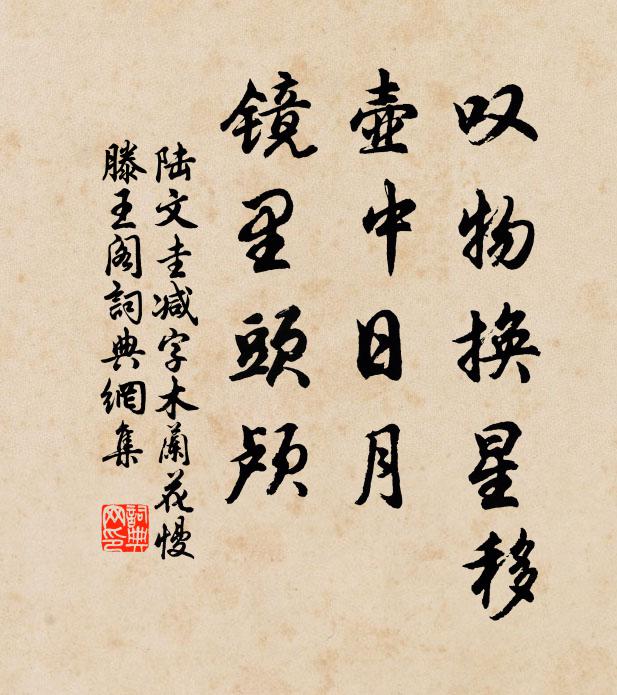 叹物换星移
壶中日月
镜里頭颅
陆文圭减字木蘭花慢
滕王阁詞典網集
詞典网印